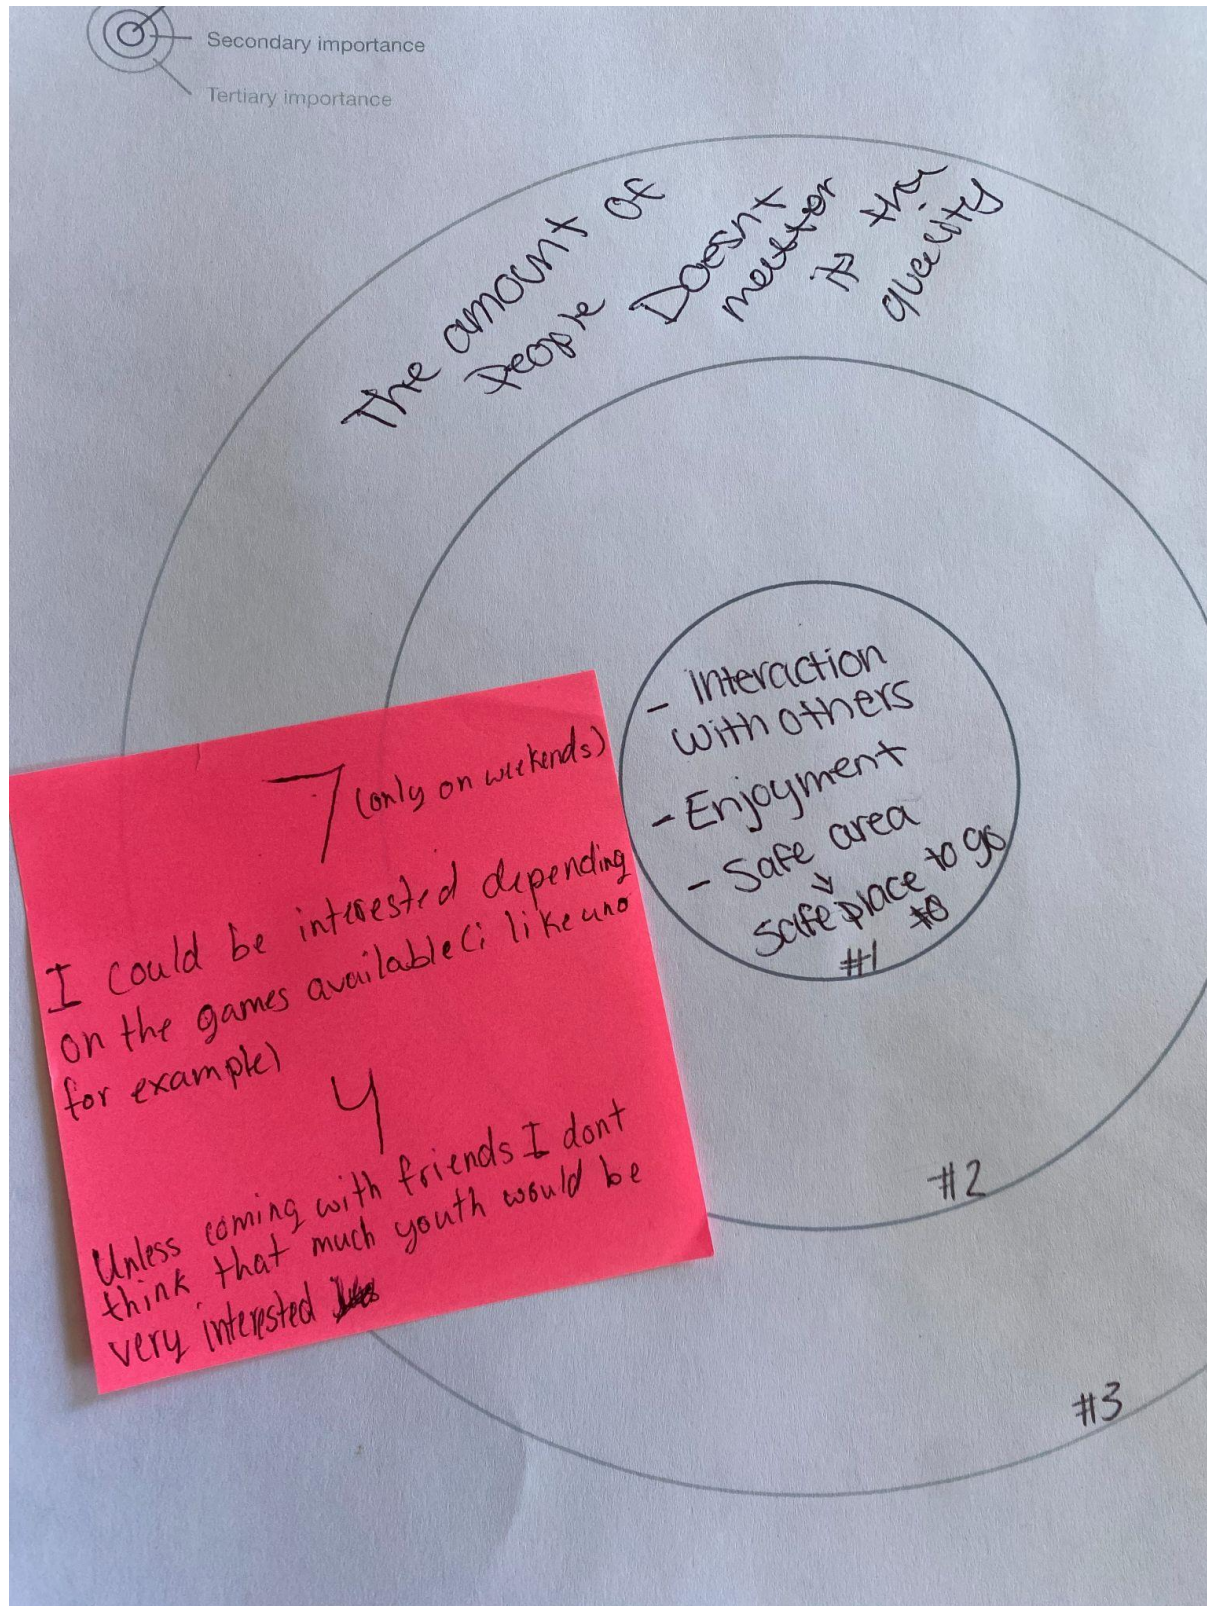 Secondary importance
Tertiary importance
The amount of
people Doesnt
matter
is the
quality
- interaction
with others
- Enjoyment
- Safe area
safe place to go
#1
#2
#3
7 (only on weekends)
I could be interested depending
on the games available (i like uno
for example)
4
Unless coming with friends I dont
think that much youth would be
very interested